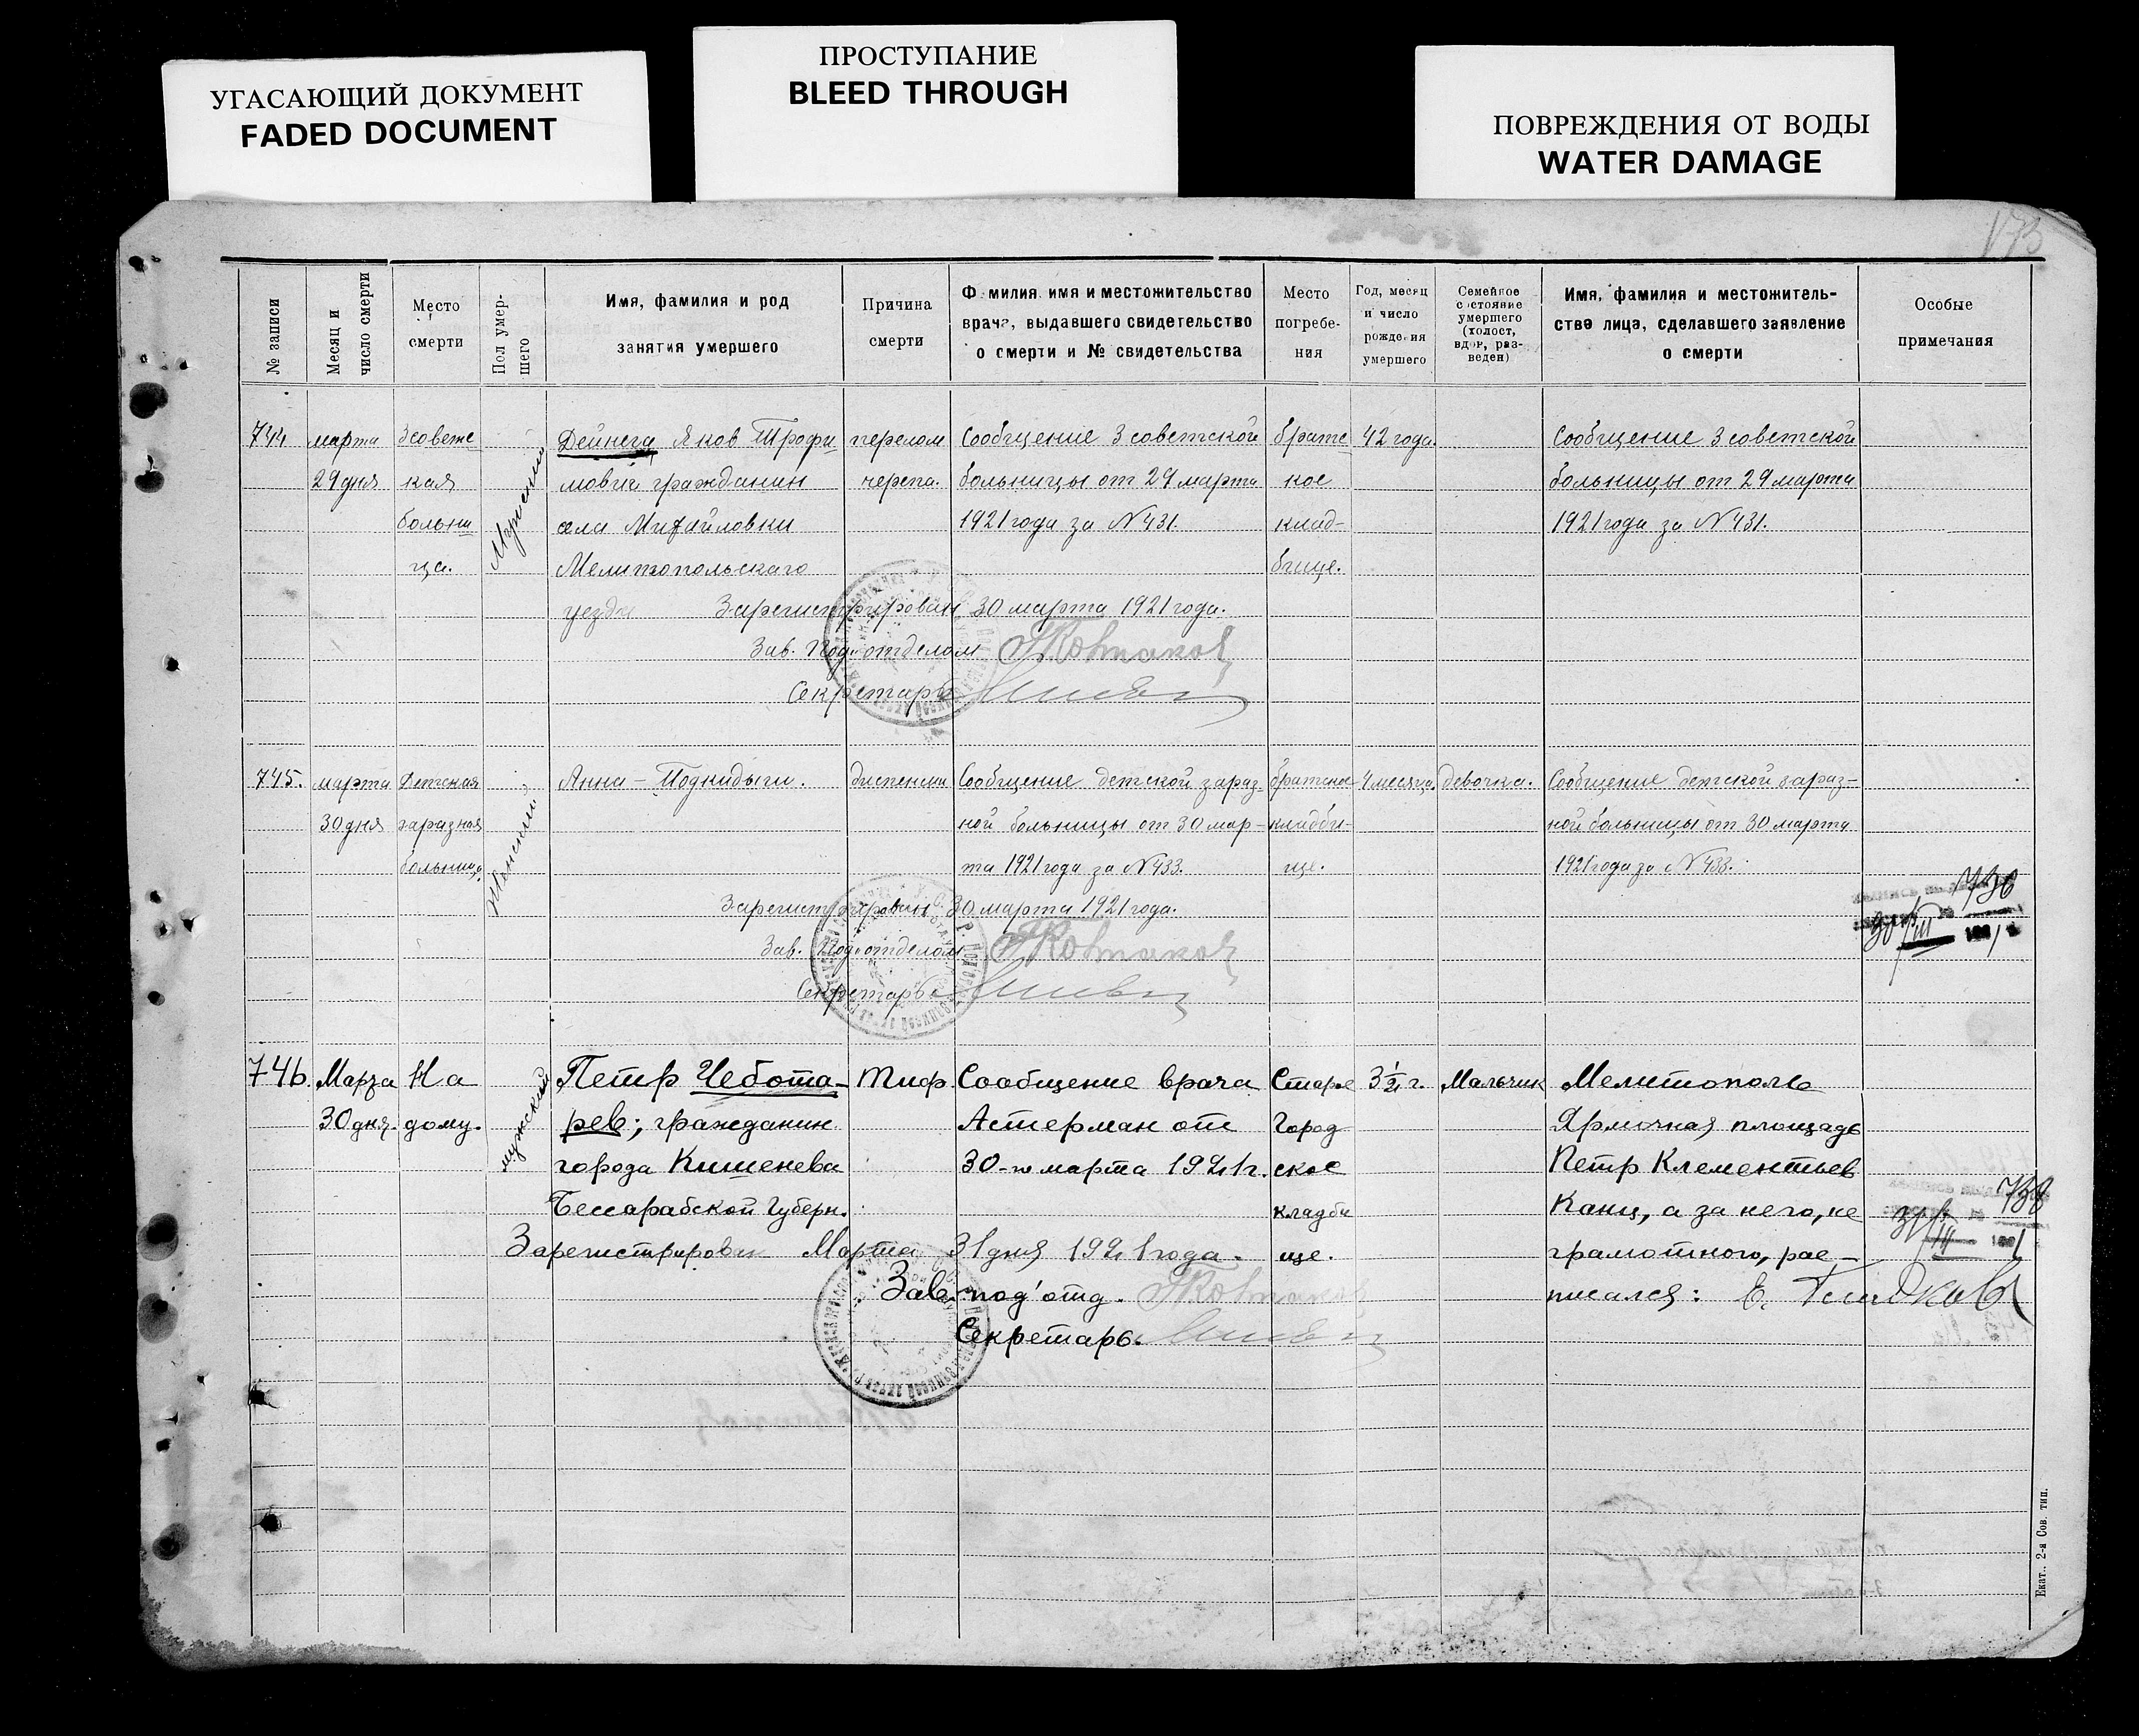 УГАСАЮЩИЙ ДОКУМЕНТ
FADED DOCUMENT
ПРОСТУПАНИЕ
BLEED THROUGH
ПОВРЕЖДЕНИЯ ОТ ВОДЫ
WATER DAMAGE
173
№ записи
Месяц и
число смерти
Место
смерти
Пол умер-
шего
Имя, фамилия и род
занятия умершего
Причина
смерти
Фамилия, имя и местожительство
врача, выдавшего свидетельство
о смерти и № свидетельства
Место
погребе-
ния
Год, месяц
и число
рождения
умершего
Семейное
состояние
умершего
(холост,
вдов, раз-
веден)
Имя, фамилия и местожитель-
ство лица, сделавшего заявление
о смерти
Особые
примечания
744
марта
29 дня
3 советс
кая
больни
ца.
Дейнега Яков Трофи
мович гражданин
села Михайловки
Мелитопольскаго
уезда
перелом
черепа.
Сообщение 3 советской
больницы от 29 марта
1921 года за № 431.
братс
кое
клад-
бище.
42 года.
Сообщение 3 советской
больницы от 29 марта
1921 года за № 431.
Зарегистрирован 30 марта 1921 года.
Зав. Под'отделом
Секретарь
745.
марта
30 дня
Детская
заразная
больница
Женский
Анна – Подкидыш.
диспепсия
Сообщение детской зараз-
ной больницы от 30 мар-
та 1921 года за № 433.
братское
кладби-
ще.
4 месяца.
девочка.
Сообщение детской зараз-
ной больницы от 30 марта
1921 года за № 433.
Зарегистрирован 30 марта 1921 года.
Зав. Под'отделом
Секретарь
746.
Марта
30 дня.
На
дому.
мужский
Петр Чебота-
рев; гражданин
города Кишенева
Бессарабской Губерн.
Тиф.
Сообщение врача
Астерман от
30-го марта 1921 г.
Старое
Город
ское
кладби
ще.
3½ г.
Мальчик
Мелитополь
Ярмочная площадь
Петр Клементьев
Канц, а за него, не
грамотного, рас-
писался:
738
Зарегистрирован Марта 31 дня 1921 года.
Зав. под'отд.
Секретарь.
Екат. 2-я Сов. тип.